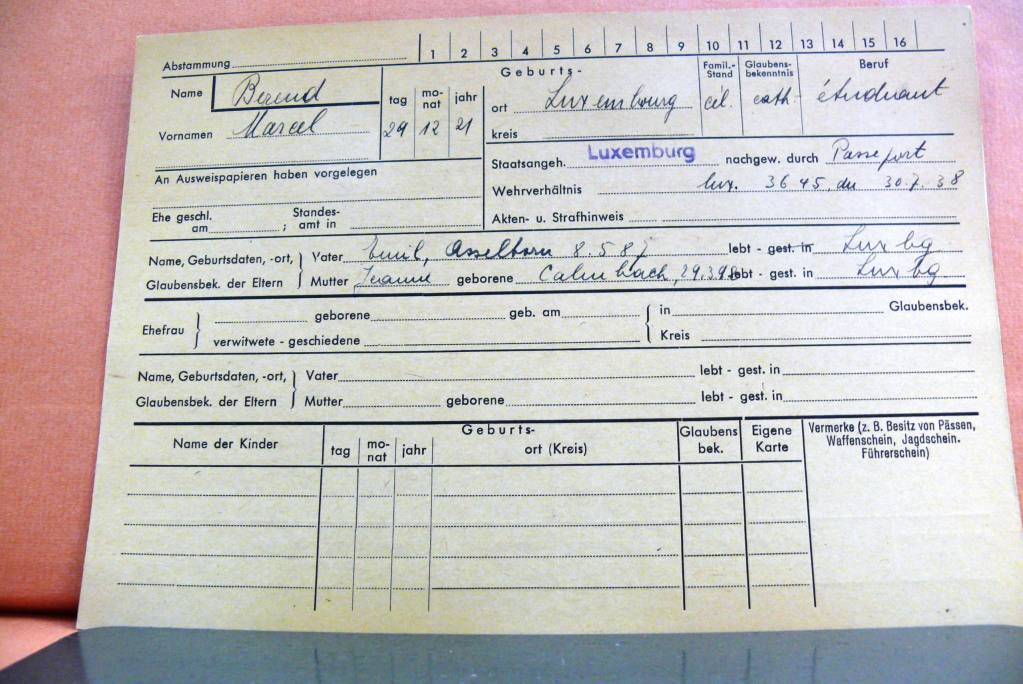 Abstammung 1 2 3 4 5 6 7 8 9 10 11 12 13 14 15 16
Name Berend
Vornamen Marcel
Geburts-
tag mo-nat jahr
29 12 21
ort Luxembourg
kreis
Famil.-Stand
cél.
Glaubens-bekenntnis
cath.
Beruf
étudiant
An Ausweispapieren haben vorgelegen
Staatsangeh. Luxemburg nachgew. durch Passeport
Wehrverhältnis lux. 3645, du 30.7.38
Ehe geschl. am ; Standes-amt in
Akten- u. Strafhinweis
Name, Geburtsdaten, -ort,
Glaubensbek. der Eltern
Vater Emil, Asselborn 8.5.87 lebt - gest. in Luxbg
Mutter Jeanne geborene Calmbach, 29.3.98 lebt - gest. in Luxbg
Ehefrau
geborene geb. am in Glaubensbek.
verwitwete - geschiedene Kreis
Name, Geburtsdaten, -ort,
Glaubensbek. der Eltern
Vater lebt - gest. in
Mutter geborene lebt - gest. in
Name der Kinder
Geburts-
tag mo-nat jahr ort (Kreis)
Glaubens bek.
Eigene Karte
Vermerke (z. B. Besitz von Pässen,
Waffenschein, Jagdschein.
Führerschein)